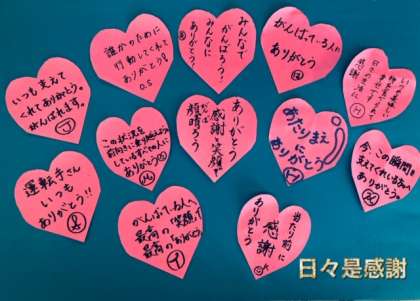 いつも支えて
くれてありがとう。
がんばれます。
誰かのために
行動してくれて
ありがとう!
O.S
みんなで
がんばろう!
みんなに
ありがとう。
がんばっている人に
ありがとう
日々の生活に
感謝
この状況を
前向きに
ありがとう
感謝と笑顔で
頑張ろう
あたりまえ
に
ありがとう
今この瞬間を
支えてくれている
ありがとう。
運転手さん
いつも
ありがとう!!
がんばっている人へ
最高の笑顔で
最高のありがとう。
当たり前に
感謝
ありがとう
日々是感謝